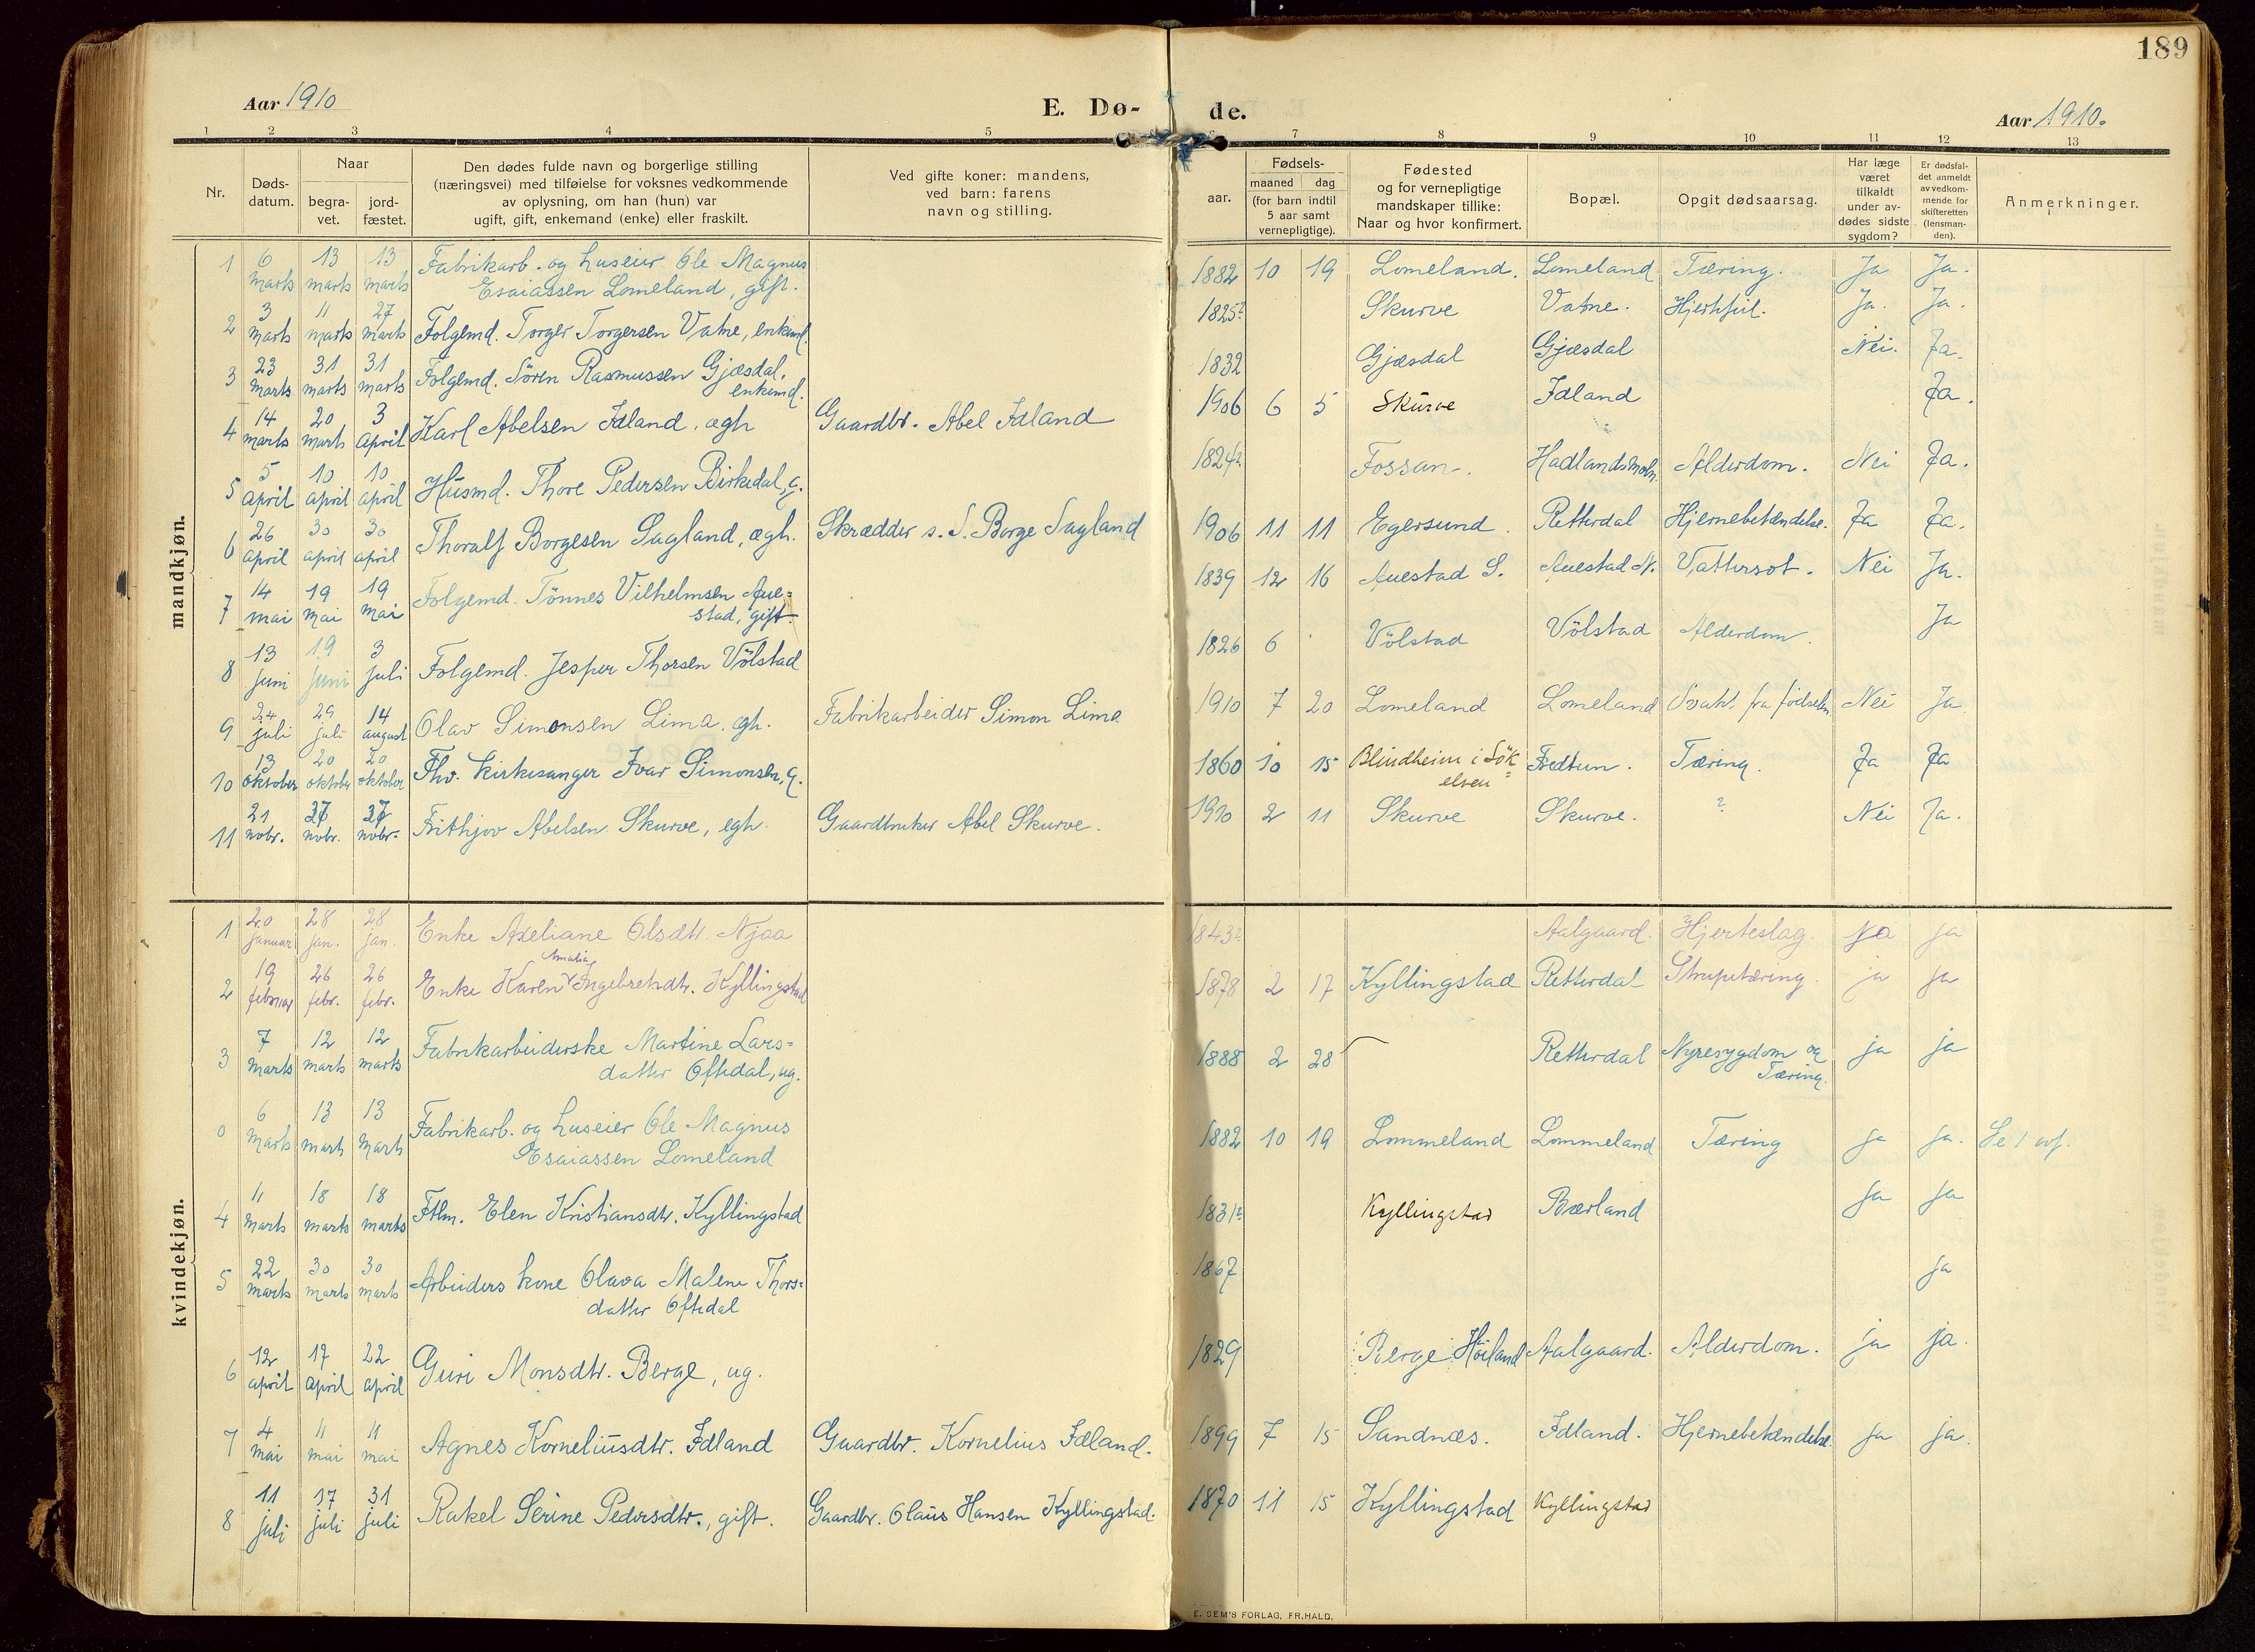 189
Aar 1910
E. Dø-
de.
Aar 1910.
1 2 3 4 5 6 7 8 9 10 11 12 13
Nr.
Døds-
datum.
Naar
begra-
vet.
jord-
fæstet.
Den dødes fulde navn og borgerlige stilling
(næringsvei) med tilføielse for voksnes vedkommende
av oplysning, om han (hun) var
ugift, gift, enkemand (enke) eller fraskilt.
Ved gifte koner: mandens,
ved barn: farens
navn og stilling.
Fødsels-
aar.
maaned dag
(for barn indtil
5 aar samt
vernepligtige).
Fødested
og for vernepligtige
mandskaper tillike:
Naar og hvor konfirmert.
Bopæl.
Opgit dødsaarsag.
Har læge
været
tilkaldt
under av-
dødes sidste
sygdom?
Er dødsfal-
det anmeldt
av vedkom-
mende for
skifteretten
(lensman-
den).
Anmerkninger.
mandkjøn.
1 6 marts 13 marts 13 marts Fabrikarb. og huseier Ole Magnus
Esaiassen Lomeland, gift. 1882 10 19 Lomeland. Lomeland Tæring. Ja Ja.
2 3 marts 11 marts 27 marts Folgemd. Torger Torgersen Vatne, enkemd. 1825? Skurve Vatne. Hjertfeil. Ja. Ja.
3 23 marts 31 marts 31 marts Folgemd. Sören Rasmussen Gjæsdal,
enkemd. 1832 Gjæsdal Gjæsdal Nei. Ja.
4 14 marts 20 marts 3 april Karl Abelsen Idland, ægh Gaardbr. Abel Idland 1906 6 5 Skurve Idland Ja.
5 5 april 10 april 10 april Husmd. Thore Pedersen Birkedal, g. 1824? Fossan. Hadlandsholm Alderdom. Nei Ja.
6 26 april 30 april 30 april Thoralf Borgesen Sagland, ægh. Skrædder s. S. Borge Sagland 1906 11 11 Egersund. Retterdal Hjernebetændelse. Ja Ja.
7 14 mai 19 mai 19 mai Folgemd. Tönnes Vilhelmsen Aue=
stad, gift. 1839 12 16 Auestad S. Auestad N. Vattersot. Nei Ja.
8 13 juni 19 juni 3 juli Folgemd. Jesper Thorsen Völstad 1826 6 Völstad Völstad Alderdom. Ja
9 24 juli 29 juli 14 august Olav Simonsen Lima, egh. Fabrikarbeider Simon Lima 1910 7 20 Lomeland Lomeland Svakh. fra fødselen Nei Ja
10 13 oktober 20 oktober 20 oktober Fhv. Kirkesanger Ivar Simonsen, g. 1860 10 15 Blindheim i Sök
elven Fredtun. Tæring. Ja Ja
11 21 nobr. 27 nobr. 27 nobr. Frithjov Abelsen Skurve, egh. Gaardbruker Abel Skurve. 1910 2 11 Skurve Skurve. ? Nei Ja.
kvindekjøn.
1 20 januar 28 jan. 28 jan. Enke Axeliane Olsdtr. Njaa 1843? Aalgaard. Hjerteslag. ja ja
Amalia
2 19 februar 26 febr. 26 febr. Enke Karen Ingebretsdtr. Kyllingstad 1878 2 17 Kyllingstad Retterdal Strupetæring. ja ja
3 7 marts 12 marts 12 marts Fabrikarbeiderske Martine Lars=
datter Oftedal, ug. 1888 2 28 Retterdal Nyresygdom og
Tæring. ja ja
0 6 marts 13 marts 13 marts Fabrikarb. og huseier Ole Magnus
Esaiassen Lomeland 1882 10 19 Lommeland Lommeland Tæring ja ja. Se 1 ovf.
4 11 marts 18 marts 18 marts Ftlm. Elen Kristiansdtr. Kyllingstad 1831? Kyllingstad Bærland ja ja
5 22 marts 30 marts 30 marts Arbeiders kone Olava Malene Thors=
datter Oftedal 1867 ja
6 12 april 17 april 22 april Guri Monsdtr. Berge, ug. 1829 Berge Höiland Aalgaard. Alderdom. ja ja.
7 4 mai 11 mai 11 mai Agnes Korneliusdtr. Idland Gaardbr. Kornelius Idland. 1899 7 15 Sandnæs. Idland. Hjernebetændelse ja ja.
8 11 juli 17 juli 31 juli Rakel Serine Pedersdtr., gift. Gaardbr. Olaus Hansen Kyllingstad. 1870 11 15 Kyllingstad Kyllingstad
E. SEM'S FORLAG, FR.HALD.